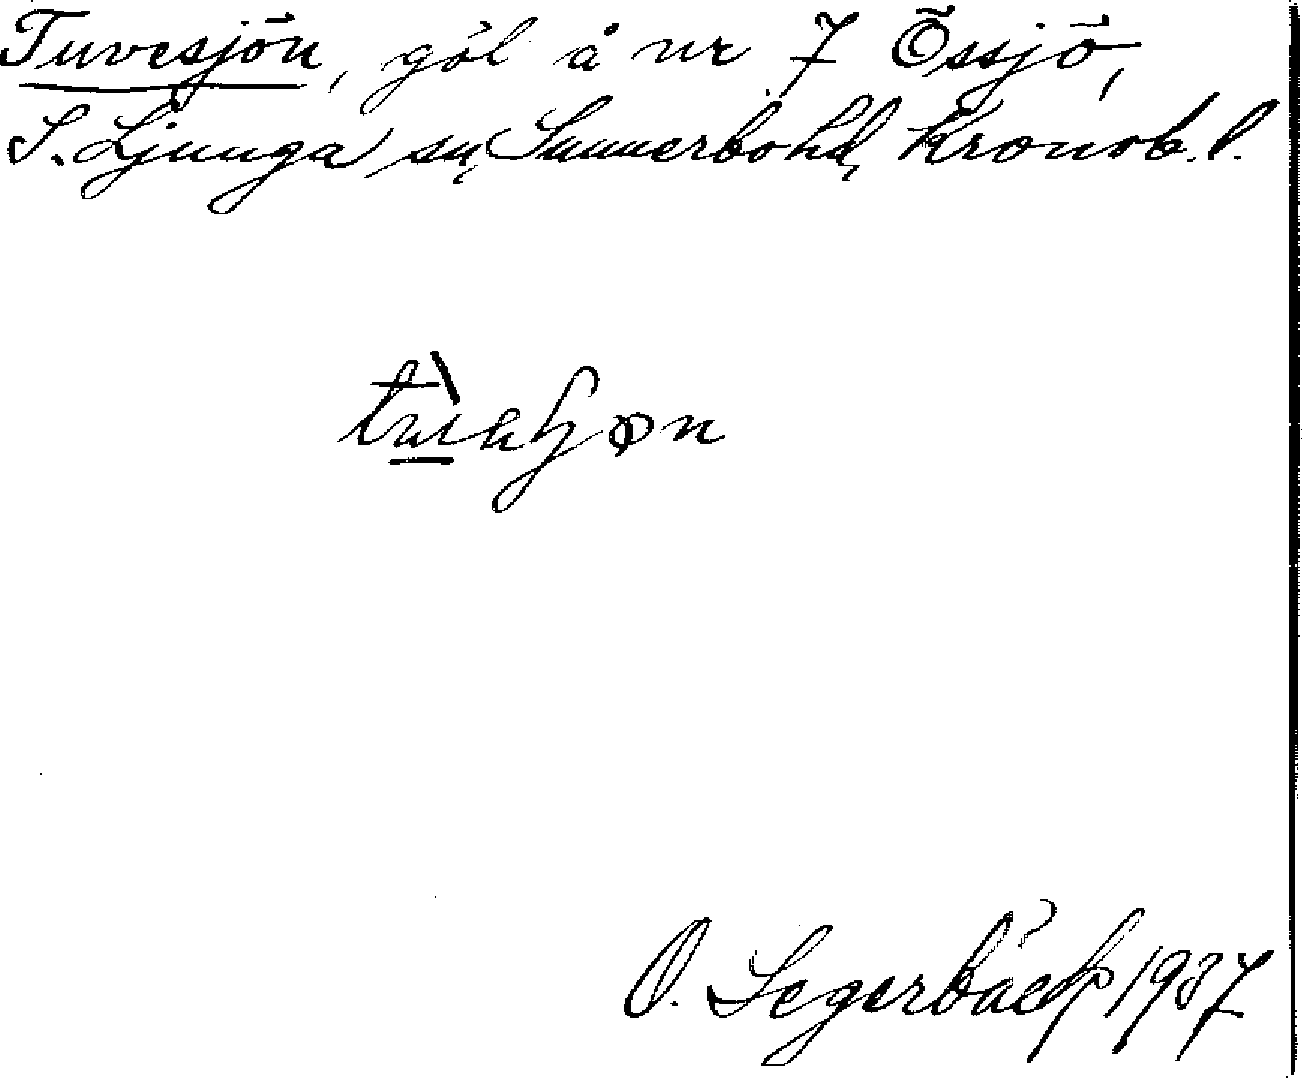 Tuvesjön, göl å nr 7 Össjö,
S. Ljunga sn, Sunnerbo hd, Kronob. l.
O. Segerbäck 1937